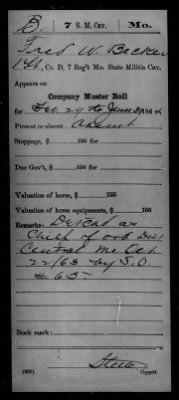 B. 7 S. M. CAV. Mo.
Fred W. Becker
1 Lt., Co. D, 7 Reg't Mo. State Militia Cav.
Appears on
Company Muster Roll
for Feb 29 to June 30, 186 4
Present or absent Absent
Stoppage, $ 100
Due Gov't, $ 100
Valuation of horse, $ 100
Valuation of horse equipments, $ 100
Remarks: Detchd as
Chief of Dist
Central Mo Oct.
22/63 by S.O.
65.
Book mark:
(858) Copyist.